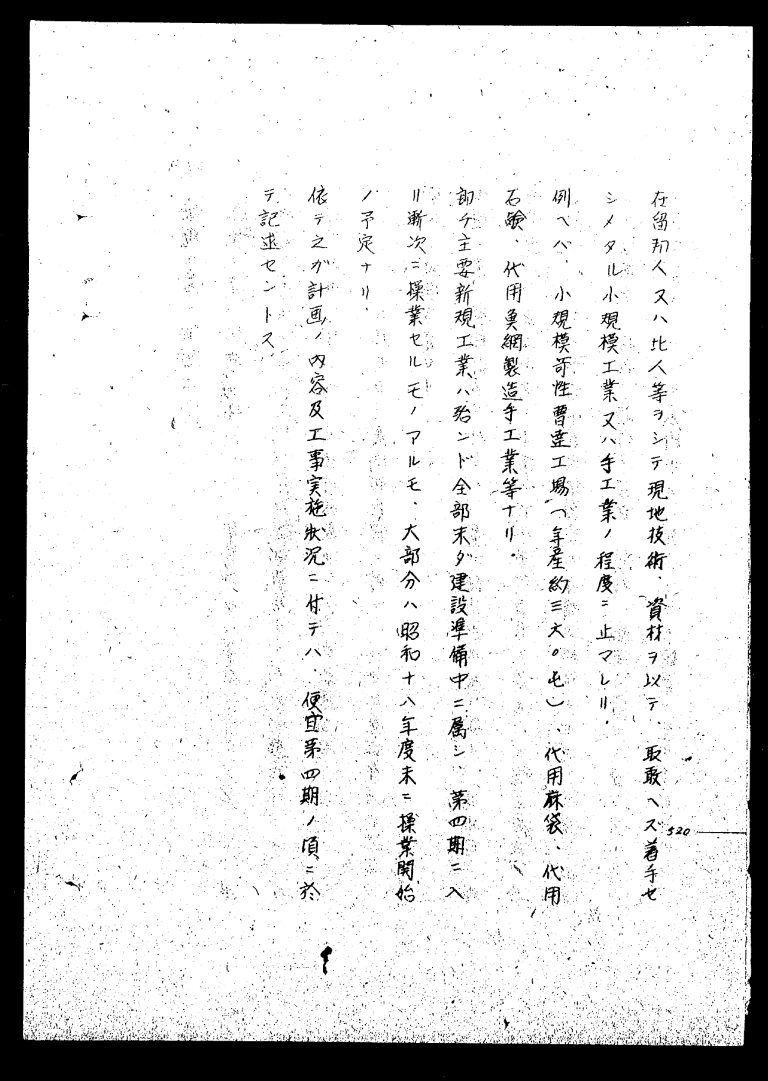 在留邦人又ハ比人等ヲシテ現地技術、資材ヲ以テ、取敢ヘズ着手セ
シメタル小規模工業又ハ手工業ノ程度ニ止マレリ。
例ヘバ、小規模苛性曹達工場(年産約三六〇屯)、代用麻袋、代用
石鹸、代用魚網製造手工業等ナリ。
即チ主要新規工業ハ殆ンド全部未ダ建設準備中ニ属シ、第四期ニ入
リ漸次ニ操業セルモノアルモ、大部分ハ昭和十八年度末ニ操業開始
ノ予定ナリ。
依テ之ガ計画ノ内容及工事実施状況ニ付テハ、便宜第四期ノ項ニ於
テ記述セントス。
520